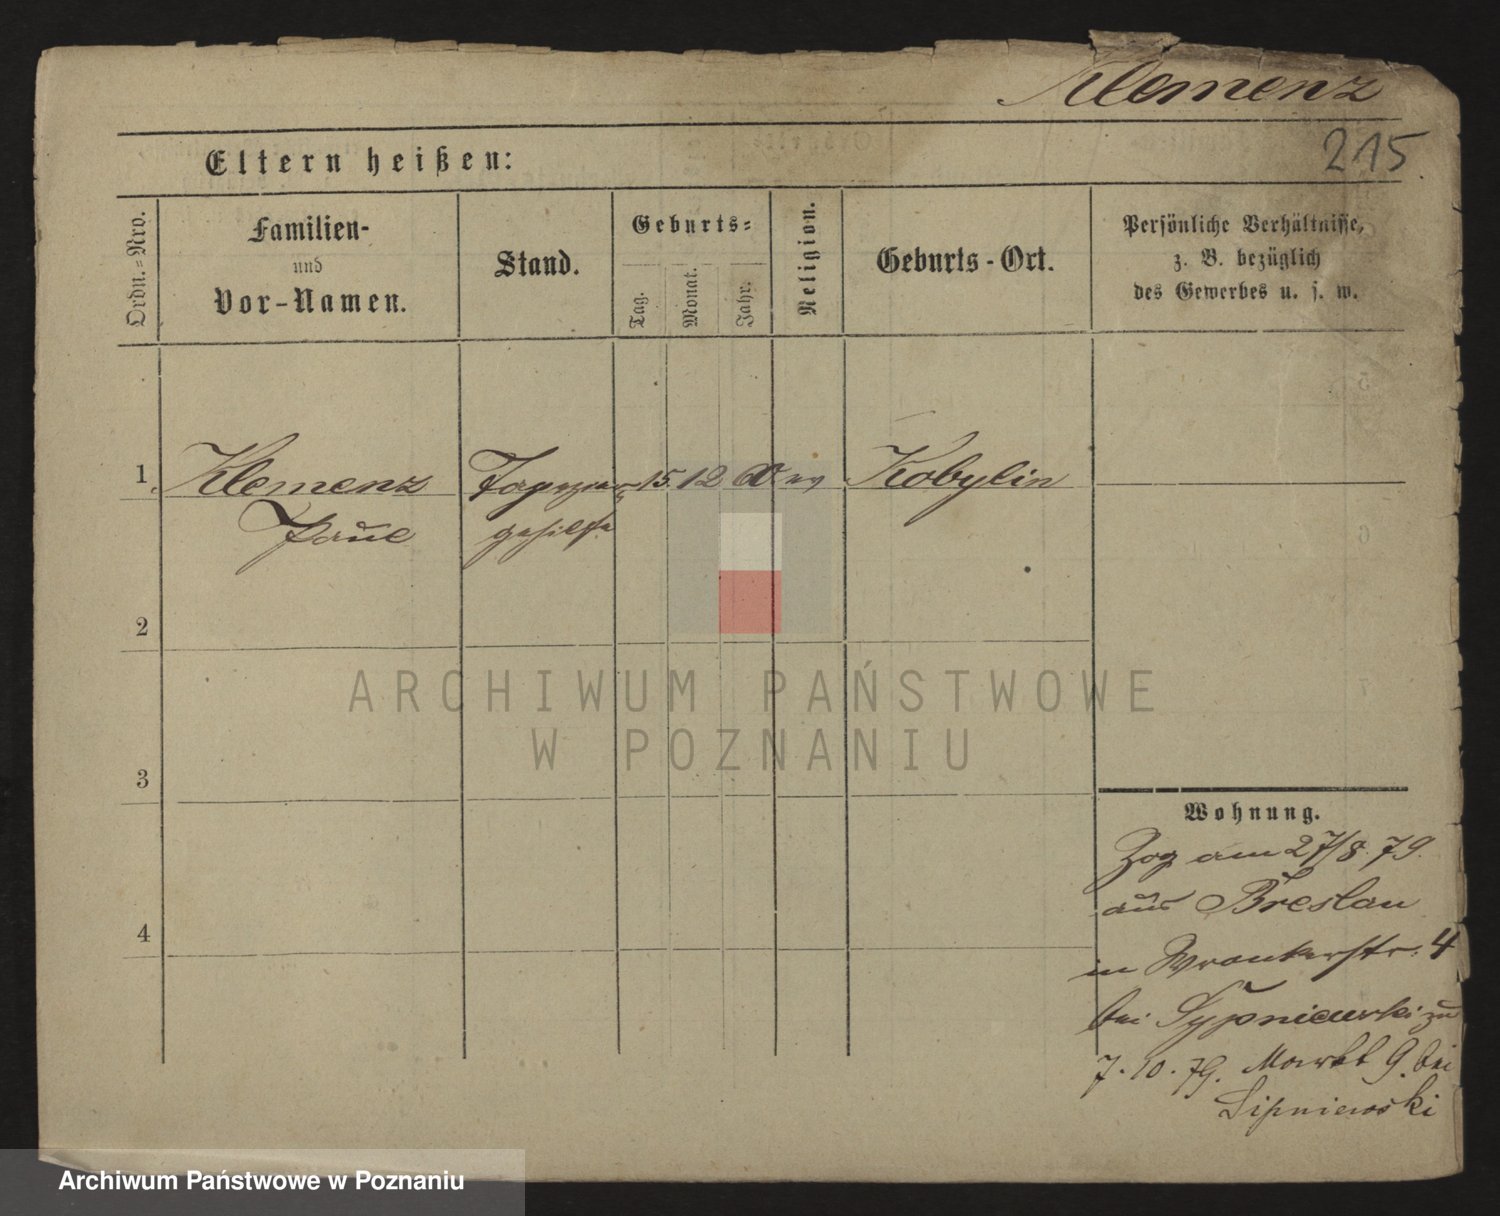 Klemenz
215
Eltern heißen:
Ordn.=Nro.
Familien-
und
Vor-Namen.
Stand.
Geburts=
Tag.
Monat.
Jahr.
Religion.
Geburts-Ort.
Persönliche Verhältnisse,
z. B. bezüglich
des Gewerbes u. s. w.
1
Klemenz
Paul
Tapezier
gehilfe
15. 12 60 ev
Kobylin
2
3
4
Wohnung.
Zog am 27/8. 79.
aus Breslau
in Wronkerstr. 4
bei Sypniewski zu
7. 10. 79. Markt 9. bei
Sipniewski
ARCHIWUM PAŃSTWOWE
W POZNANIU
Archiwum Państwowe w Poznaniu